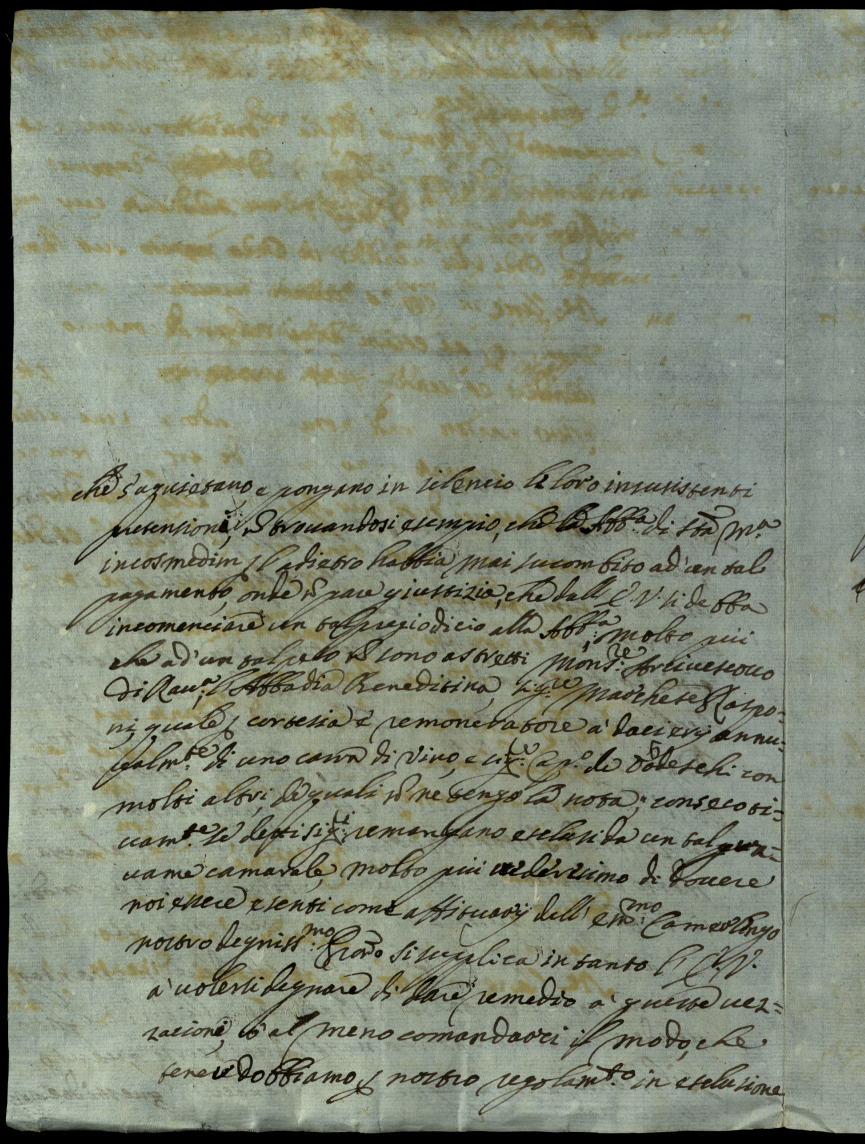 che s'aquietano, e pongano in silencio le loro insusistenti
pretensioni, trovandosi esempio, che la Abb.a di Sta M.a
in cosmedim p l'adietro habbia mai sucombito ad un tale
pagamento, onde pare giustizia, che dall' E.V. si debba
incomenciare un tal pregiodicio alla Abb.a, molto piu
che ad' un tal peso sono astretti Mons.re Arcivescovo
di Rav.a, l'Abbadia Beneditina, sig.re Marchese Raspo-
ni, quale p cortesia è remoneratore a' daciery annu-
galm.te di uno carra di vino, e sig.re Cap.o de Todeschi con
molti altri de quali ne tengo la nota; consecoti-
vam.te se detti sig.ri remangano esclusi da un tal gra-
vame camarale, molto piu vedessimo di dovere
noi essere esenti come affituarij dell' em.mo Camerlengo
nostro degniss.mo si suplica in tanto l' E.V.
a' volersi degnare di dare remedio a' queste vez-
zacione, o' al meno comandarci il modo, che
tenere dobbiamo p nostro regolam.to in esclusione